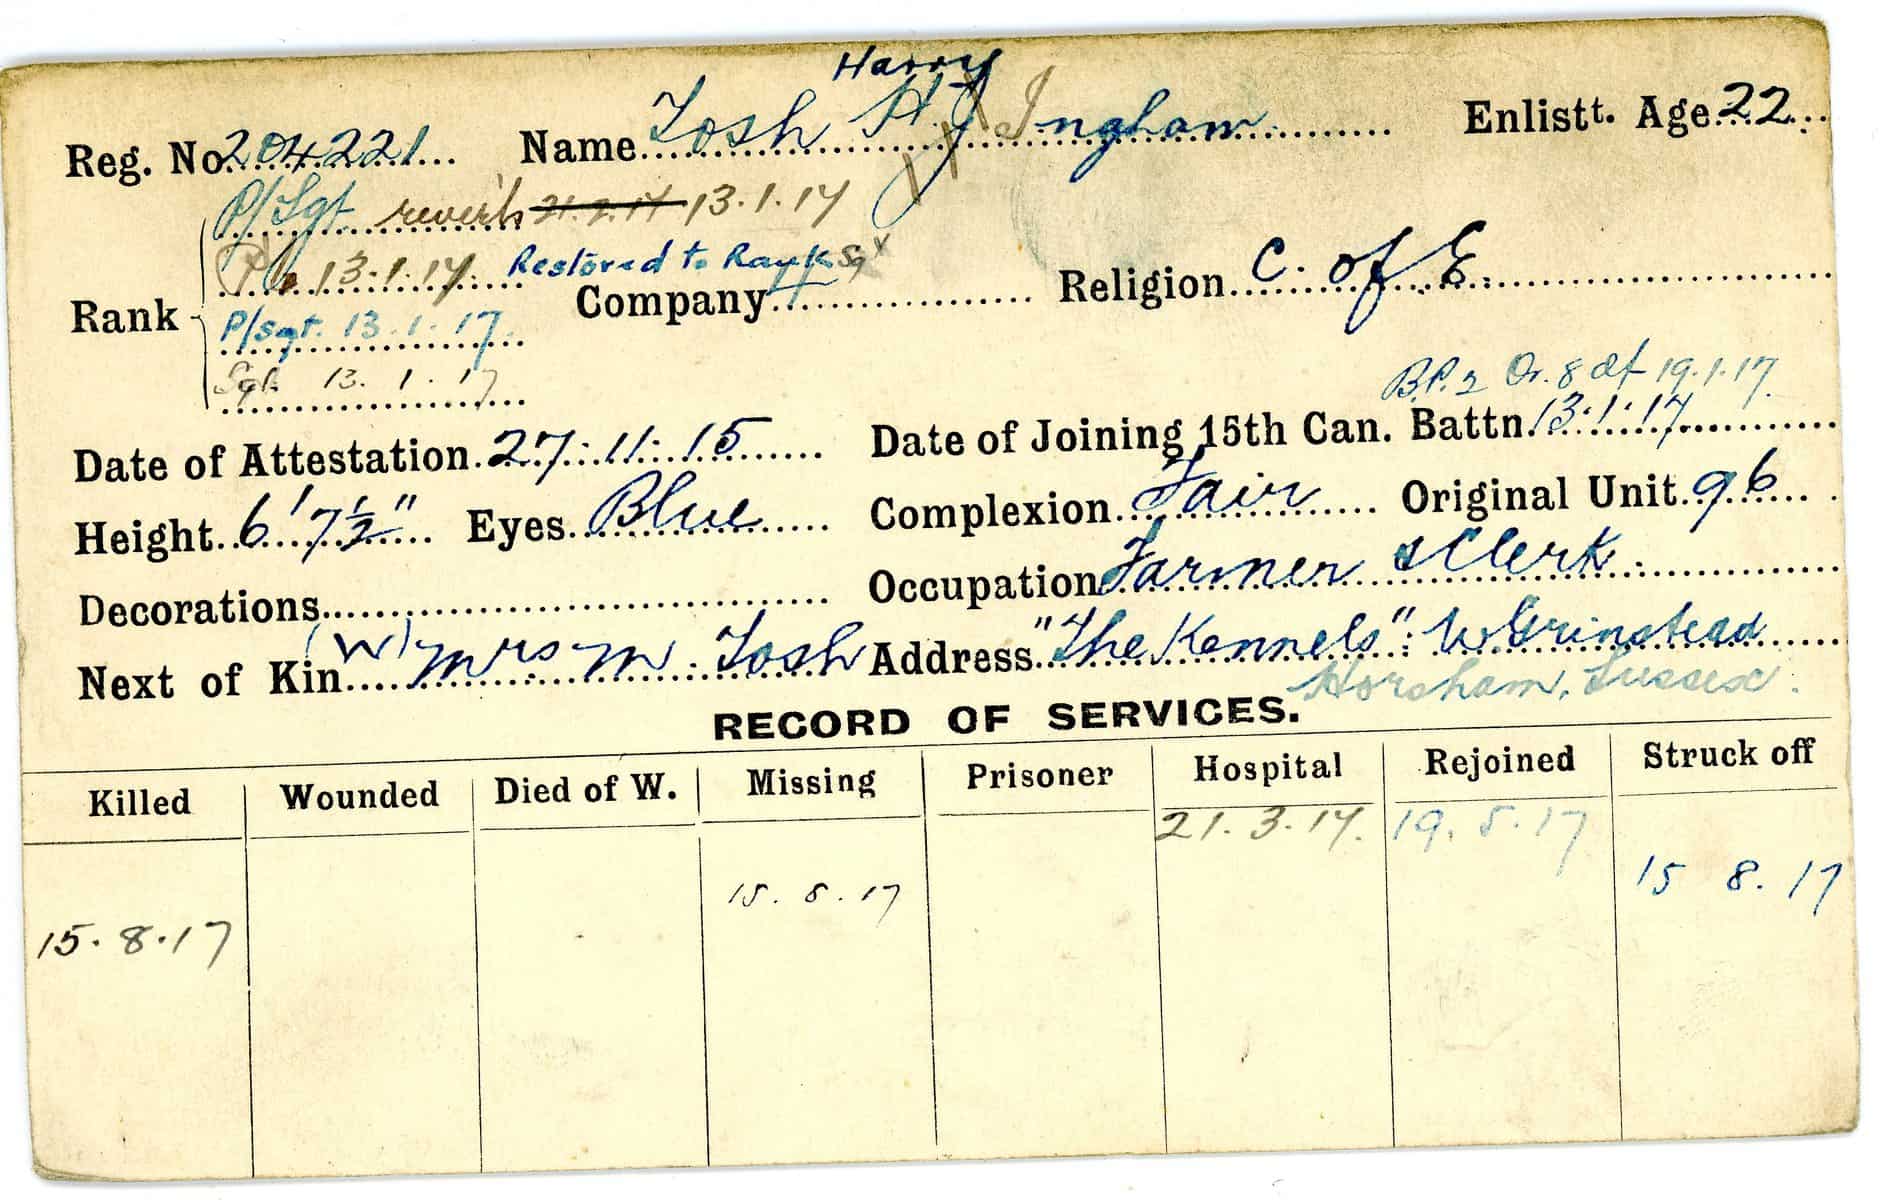 Harry
Reg. No. 204221 Name Tosh H. J. Ingham Enlistt. Age 22
P/Sgt reverts 21.2.17 13.1.17
13.1.17. Restored to Rank Sgt
Rank Company Religion C. of E.
P/Sgt. 13.1.17.
Sgt. 13.1.17
B.P.2 Or. 8 df 19.1.17.
Date of Attestation 27.11.15 Date of Joining 15th Can. Battn. 13.1.17
Height 6' 7½" Eyes Blue Complexion Fair Original Unit 96
Decorations Occupation Farmer & Clerk
Next of Kin (W) Mrs M. Tosh Address "The Kennels": W Grinstead
Horsham, Sussex.
RECORD OF SERVICES.
Killed Wounded Died of W. Missing Prisoner Hospital Rejoined Struck off
21.3.17. 19.5.17
15.8.17 15 8.17
15.8.17